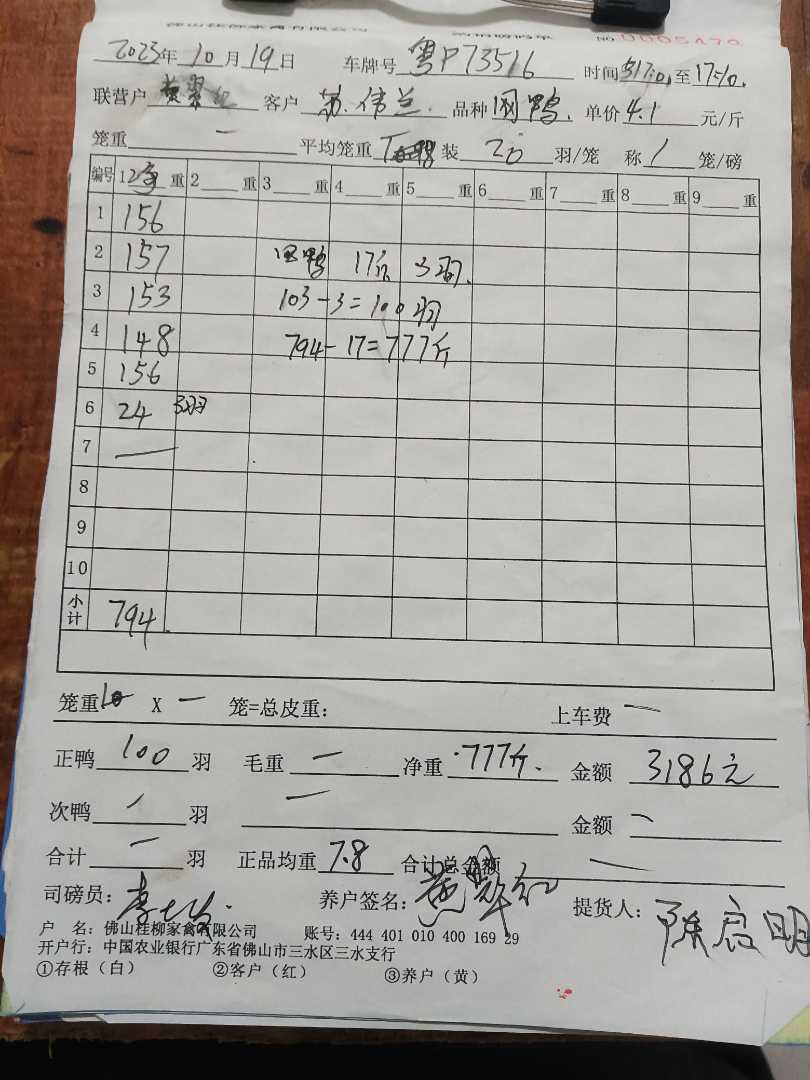 NO 0005479
2023年10月19日 车牌号 粤P73516 时间 至17:10
联营户 客户 苏伟兰 品种 鸭 单价 4.1 元/斤
笼重 一 平均笼重 装 20 羽/笼 称 1 笼/磅
编号 1 重 2 重 3 重 4 重 5 重 6 重 7 重 8 重 9 重
1 156
2 157 鸭 17斤 3羽
3 153 103-3=100羽
4 148 794-17=777斤
5 156
6 24 3羽
7 一
8
9
10
小计 794
笼重 X 一 笼=总皮重: 上车费 一
正鸭 100 羽 毛重 一 净重 777斤 金额 3186元
次鸭 羽 一 金额
合计 一 羽 正品均重 7.8 合计总金额 一
司磅员: 养户签名: 提货人: 陈启明
户 名: 佛山桂柳家禽有限公司 账号: 444 401 010 400 169 29
开户行: 中国农业银行广东省佛山市三水区三水支行
①存根(白) ②客户(红) ③养户(黄)